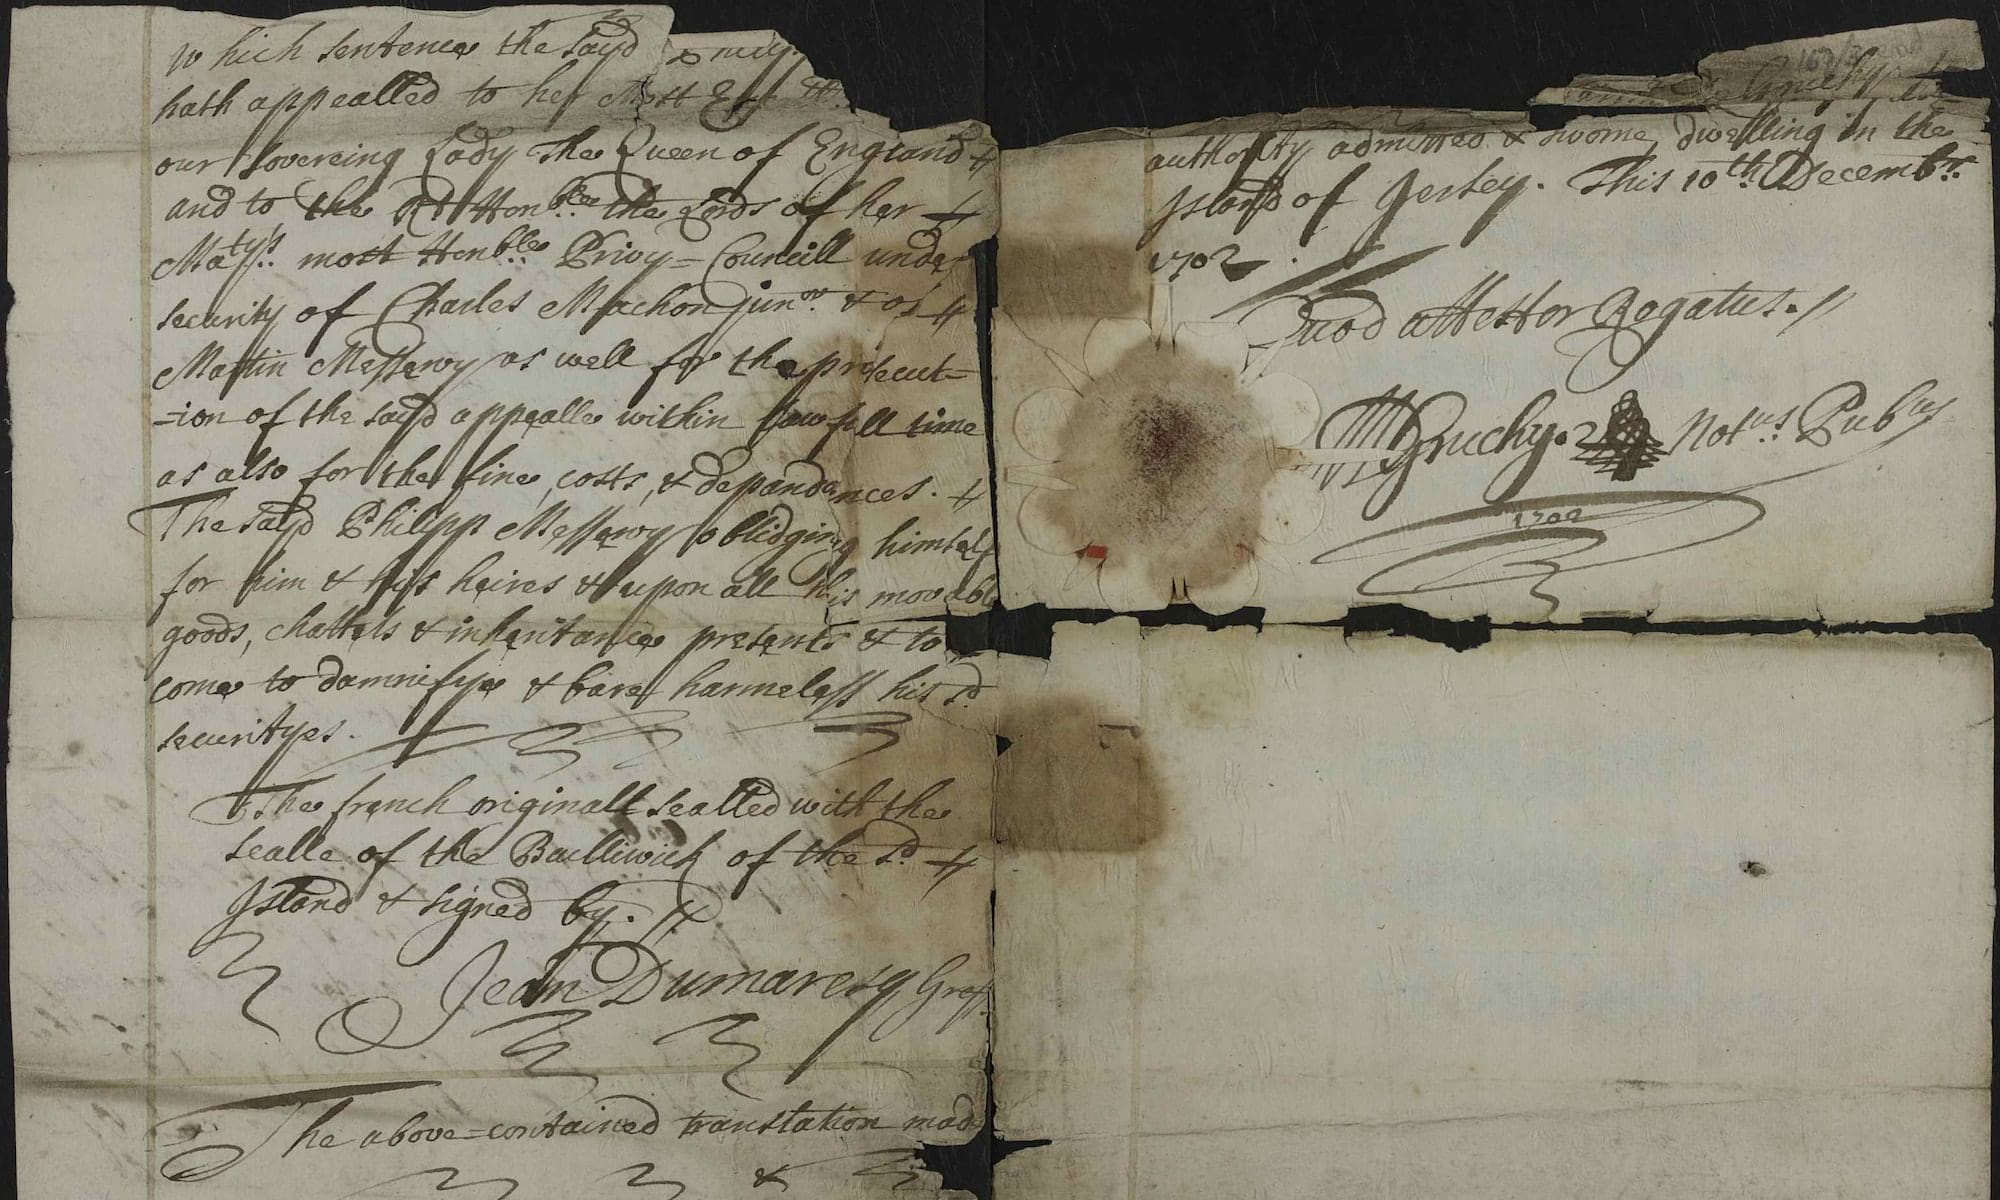 which sentence the sayd
hath appealled to her Most
our Sovereing Lady The Queen of England
and to the Rt Honble the Lords of her
Matys. most Honble. Privy = Councill under
security of Charles Machon junor. & of
Martin Messervy as well for the prosecut=
=ion of the sayd appealle within lawfull time
as also for the fine, costs, & dependances.
The sayd Philipp Messervy oblidging himself
for him & his heires & upon all his movable
goods, chattels & inheritance presents & to
come to damnifye & bare harmelesse his sd
securityes.
The french originall sealled with the
sealle of the Bailliwick of the sd
Island & signed by.
Jean Dumaresq Greff.
The above=contained translation made
&
Gruchy
authority admitted & sworne, dwelling in the
Island of Jersey. This 10th. Decembr.
1702.
Quod attestor Rogatus.
Gruchy. Notus. Pubcus
1702